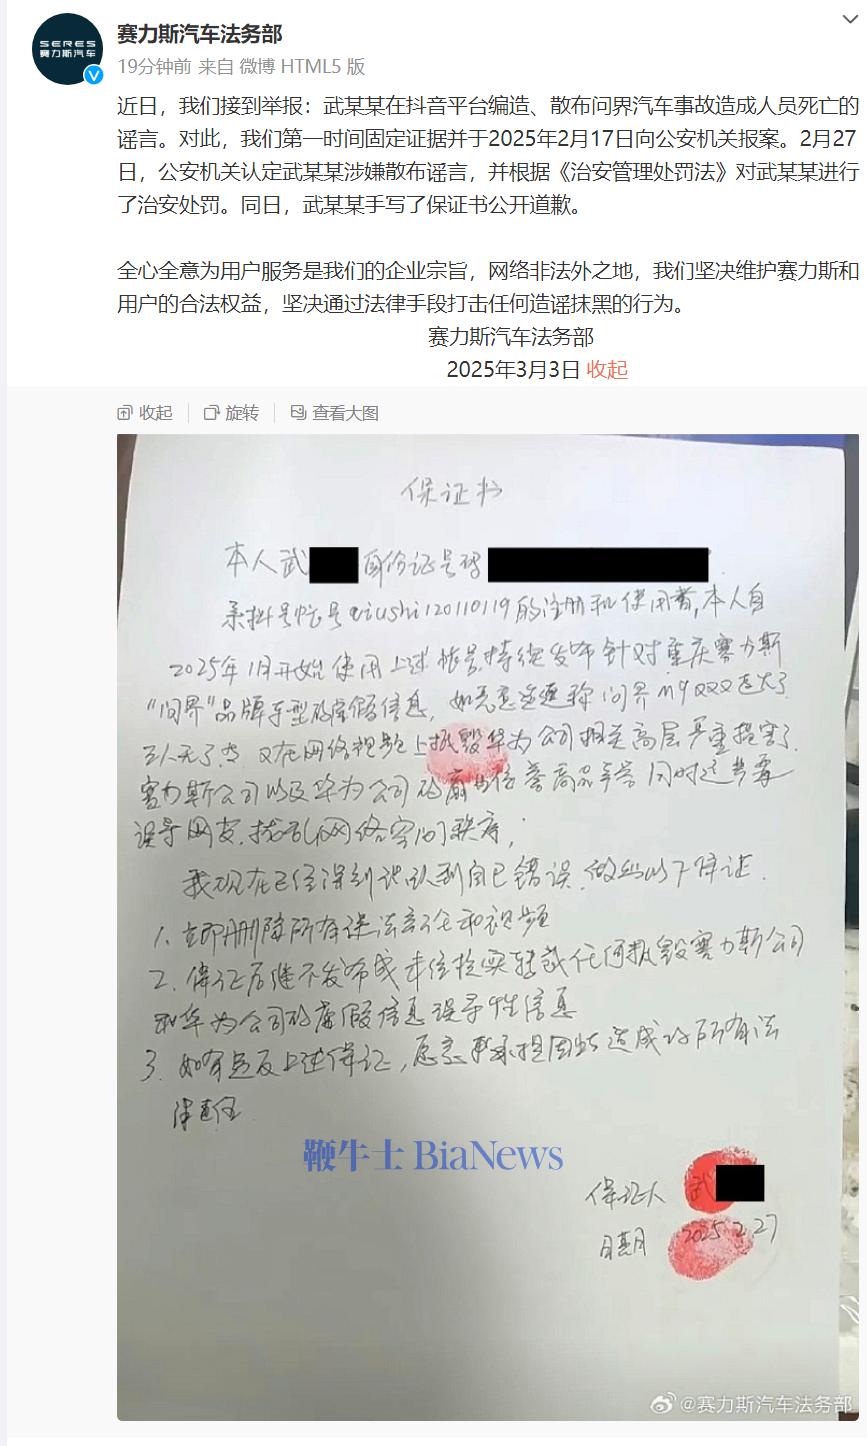 SERES
赛力斯汽车
赛力斯汽车法务部
19分钟前 来自 微博 HTML5 版
近日，我们接到举报：武某某在抖音平台编造、散布问界汽车事故造成人员死亡的
谣言。对此，我们第一时间固定证据并于2025年2月17日向公安机关报案。2月27
日，公安机关认定武某某涉嫌散布谣言，并根据《治安管理处罚法》对武某某进行
了治安处罚。同日，武某某手写了保证书公开道歉。
全心全意为用户服务是我们的企业宗旨，网络非法外之地，我们坚决维护赛力斯和
用户的合法权益，坚决通过法律手段打击任何造谣抹黑的行为。
赛力斯汽车法务部
2025年3月3日 收起
收起 旋转 查看大图
保证书
本人武 身份证号码
系抖音帐号qiushi120110119的注册和使用者,本人自
2025年1月开始使用上述帐号持续发布针对重庆赛力斯
"问界"品牌车型的虚假信息，如恶意造谣称问界m9 连火了
三人无了 又在网络视频上抵毁华为公司相关高层严重损害了
赛力斯公司以及华为公司的商业信誉商品声誉 同时这些
误导网友,扰乱网络空间秩序;
我现在已经深刻认识到自己错误,做出以下保证.
1. 立即删除所有违法言论和视频
2. 保证后继不发布或未经核实转载任何抵毁赛力斯公司
和华为公司的虚假信息误导性信息
3. 如有违反上述保证,愿意承担因此造成的所有法
律责任
鞭牛士 BiaNews
保证人 武
日期 2025 2.27
@赛力斯汽车法务部